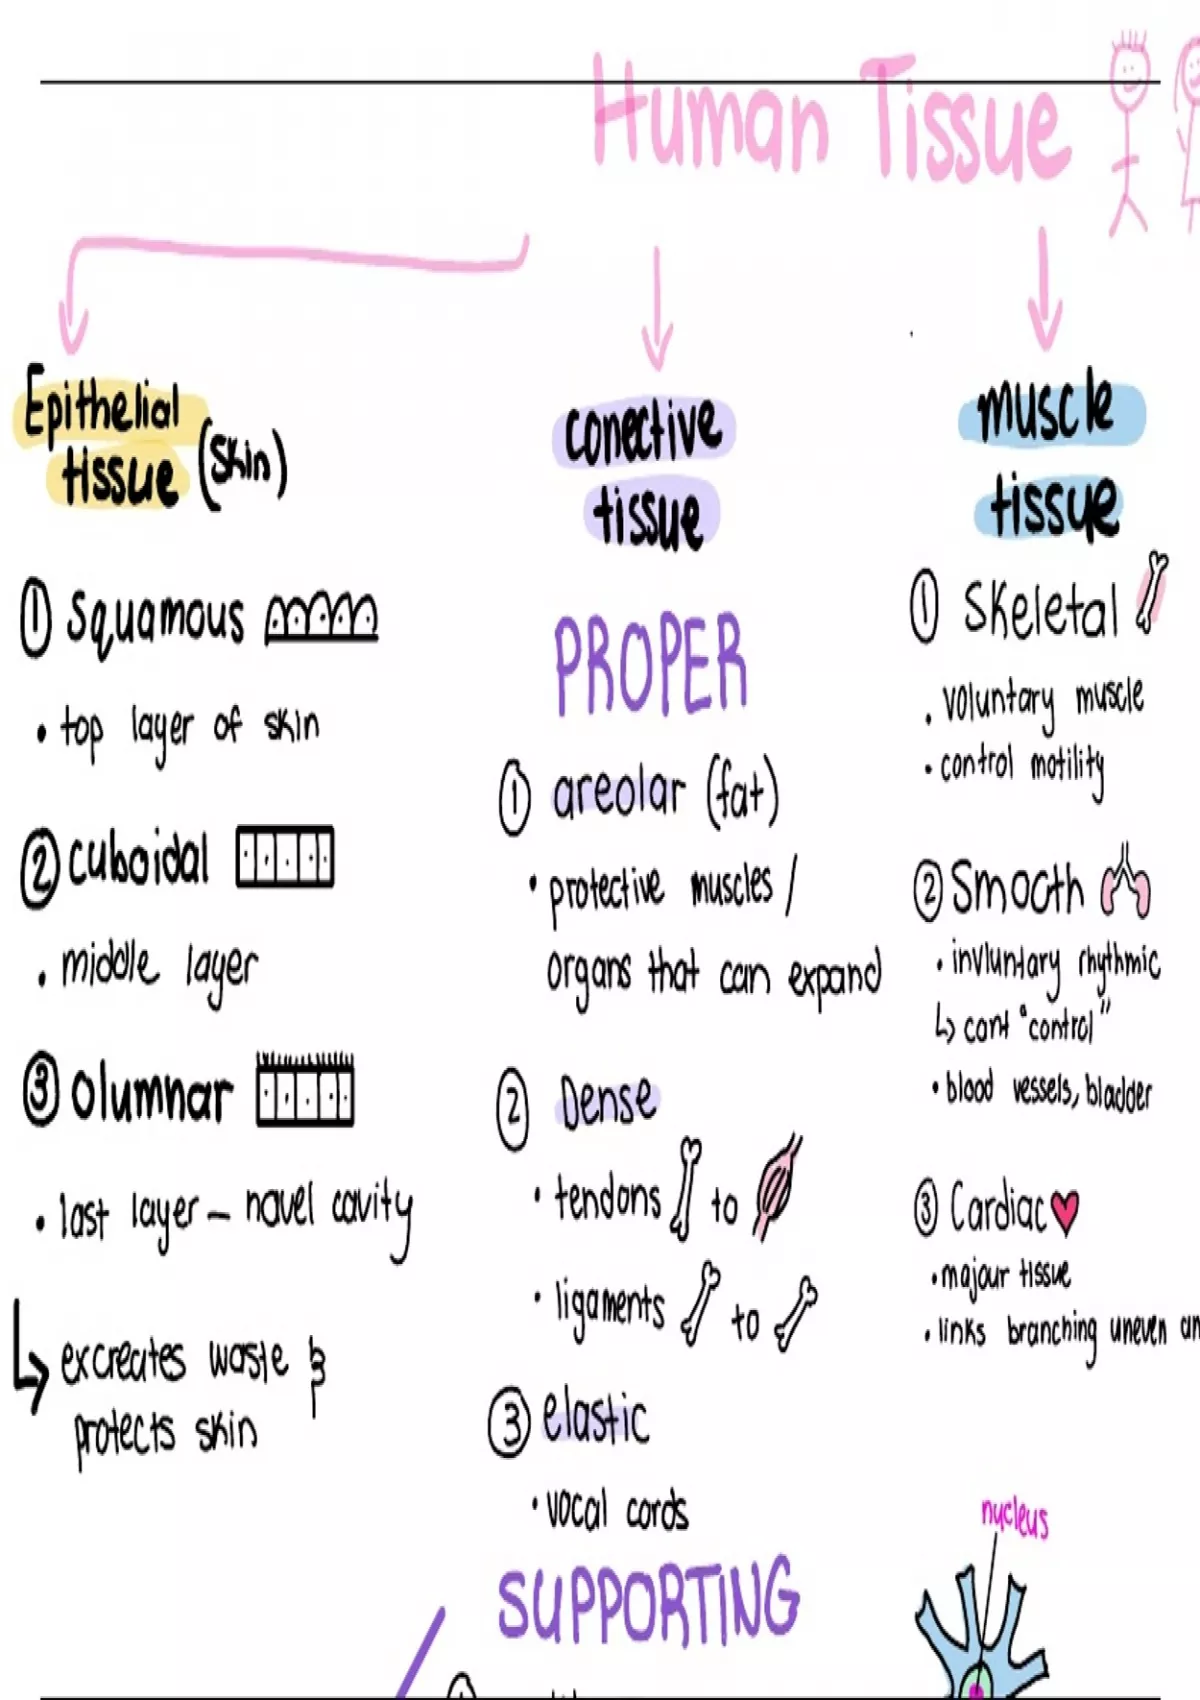 Human Tissue
Epithelial
tissue (skin)
① Squamous
• top layer of skin
② cuboidal
• middle layer
③ olumnar
• last layer – navel cavity
↳ excreates waste &
protects skin
conective
tissue
PROPER
① areolar (fat)
• protective muscles /
organs that can expand
② Dense
• tendons to
• ligaments to
③ elastic
• vocal cords
SUPPORTING
muscle
tissue
① Skeletal
• voluntary muscle
• control motility
② Smooth
• invluntary rhythmic
↳ cant "control"
• blood vessels, bladder
③ Cardiac
• majour tissue
• links branching uneven an
nucleus